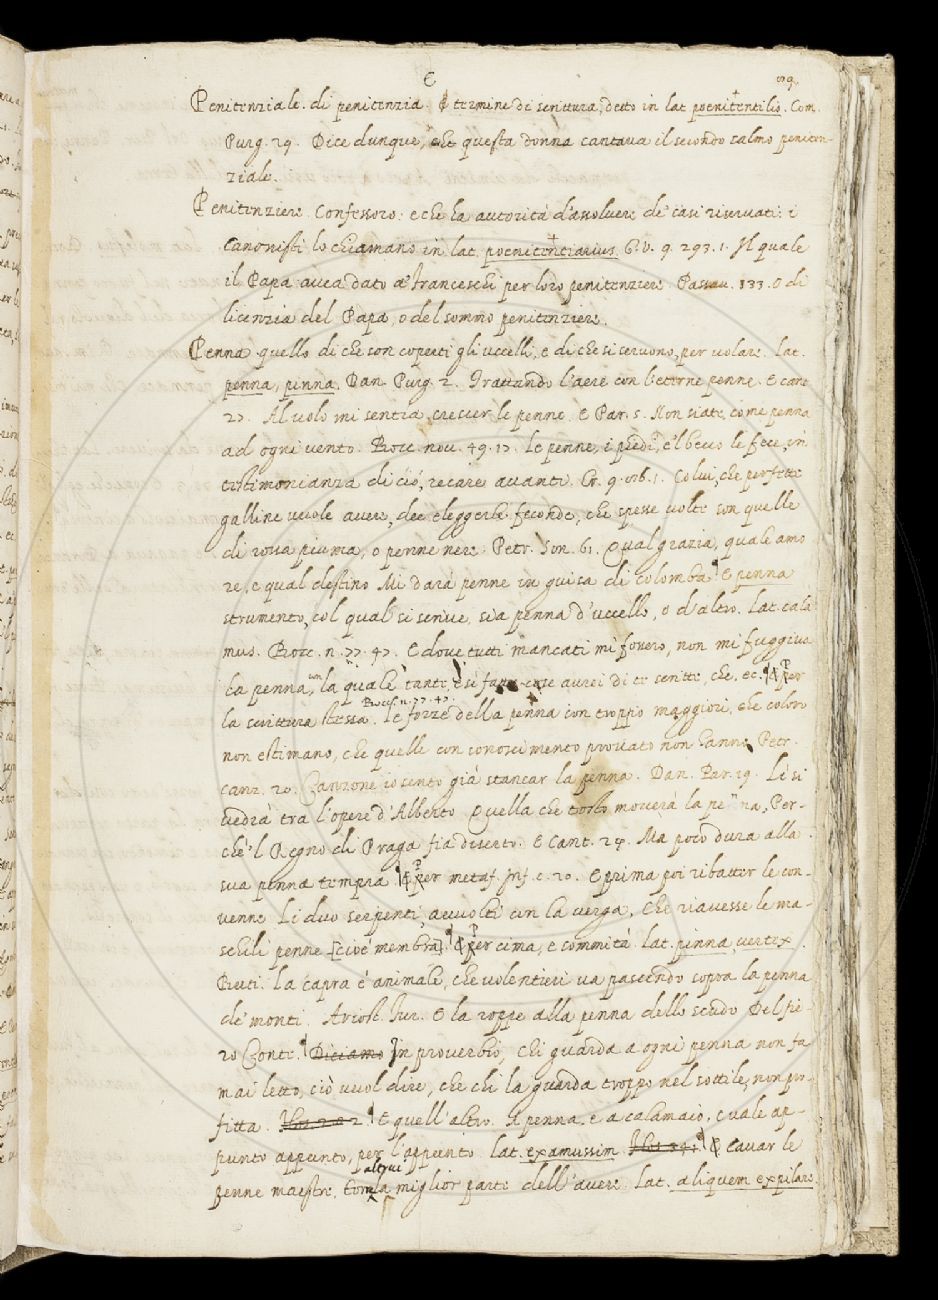 E
Penitenziale. di penitenzia. E termine di scrittura, detto in lat. poenitentilis. Com.
Purg. 29. Dice dunque, che questa donna cantava il secondo salmo peniten-
ziale.
Penitenziere. Confessoro: e che ha autorità d'assolvere de' casi riservati: i
Canonisti lo chiamano in lat. poenitentiarius. G. V. 9. 293. 1. Il quale
il Papa avea dato a' Franceschi per loro penitenziere. Passav. 133. O di
licenzia del Papa, o del sommo penitenziere.
Penna quello di che son coperti gli uccelli, e di che si servono, per volare. Lat.
penna, pinna. Dan. Purg. 2. Trattando l'aere con l'eterne penne. E cant.
27. Al volo mi sentia crescer le penne. E Par. 5. Non siate, come penna
ad ogni vento. Bocc. nov. 49. 17. Le penne, i piedi, e 'l becco le fece, in
testimonianza di ciò, recare avanti. Cr. 9. 1. Colui, che perfette
galline vuole avere, dee eleggerle feconde, che spesse volte son quelle
di rossa piuma, o penne nere. Petr. Son. 61. Qual grazia, quale amo-
re, e qual destino Mi darà penne in guisa di colomba E penna
strumento, col qual si scrive, sia penna d'uccello, o d'altro. Lat. cala
mus. Bocc. n. 77. 47. E dove tutti mancati mi fovero, non mi fuggiva
la penna, con la quale tante, e si fatte cose avrei di te scritte, che. ec. E per
Bocc. n. 77. 47.
la scrittura stessa. Le forze della penna son troppo maggiori, che coloro
non estimano, che quelle con conoscimento provato non hanno. Petr.
canz. 20. Canzone io sento già stancar la penna. Dan. Par. 19. Lì si
vedrà tra l'opere d'Alberto Quella che tosto moverà la penna, Per-
chè 'l Regno di Praga fia diserto. E Cant. 24. Ma poco dura alla
sua penna tempra E per metaf. Inf. c. 20. E prima poi ribatter le con-
venne Li duo serpenti, avvolti con la verga, Che riavesse le ma-
schili penne [cioè membra] E per cima, e sommità. Lat. pinna, vertex.
Buti. La capra è animale, che volentieri va pascendo sopra la penna
de' monti. Ariost. Fur. E la roppe alla penna dello scudo Del fie-
ro Conte. Diciamo In proverbio, chi guarda a ogni penna non fa
mai letto, ciò vuol dire, che chi la guarda troppo nel sottile, non pro-
fitta. E quell'altro. A penna, e a calamaio, e vale ap-
punto appunto, per l'appunto. Lat. examussim. E cavar le
altrui
penne maestre, la miglior parte dell'avere. Lat. aliquem expilare.